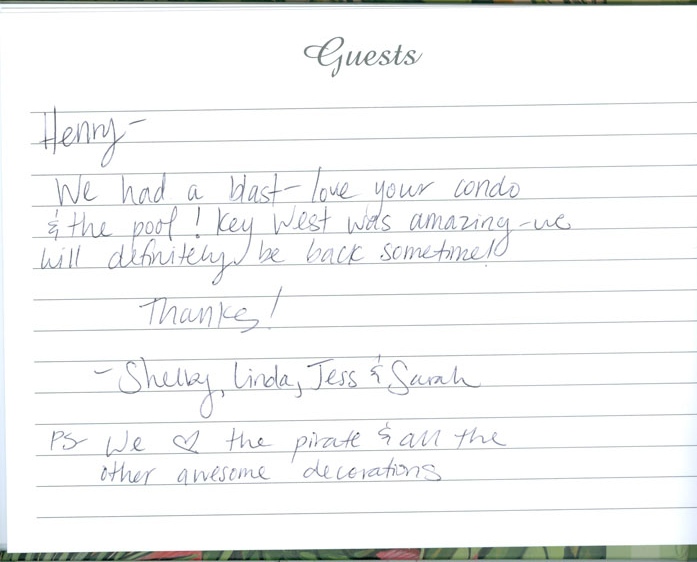 Guests
Henry-
We had a blast - love your condo
& the pool! Key West was amazing - we
will definitely be back sometime!
Thanks!
- Shelby, Linda, Jess & Sarah
PS- We ♡ the pirate & all the
other awesome decorations